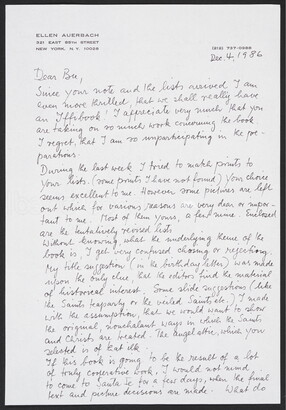 ELLEN AUERBACH
321 EAST 85TH STREET
NEW YORK, N.Y. 10028
Dec. 4, 1986
Dear
Since your note and the lists arrived I am
even more thrilled, that we shall really have
an book! I appreciate very much that you
are taking on so much work concerning the book
I regret, that I am so unparticipating in the pre-
parations.
During the last week I tried to match prints to
your lists. (some prints I have not found) Your choice
seems excellent to me. However some pictures are left
out which for various reasons are very dear or impor-
tant to me. Most of them yours, a few mine. Enclosed
are the tentatively revised lists
Without knowing, what the underlying theme of the
book is, I get very confused chosing or rejecting.
My title suggestion (in the birthday letter) was made
upon the only clue that the editors find the material
of historical interest. Some slide suggestions (like
the Saints teaparty or the veiled Saints etc.) I made
with the assumption, that we would want to show
the original, nonchalant ways in which the Saints
and Christs are treated. The angel attic, which you
selected is of that ilk.
If this book is going to be the result of a lot
of truly cooperative work, I would not mind
to come to Santa Fe for a few days, when the final
text and picture decisions are made. What do